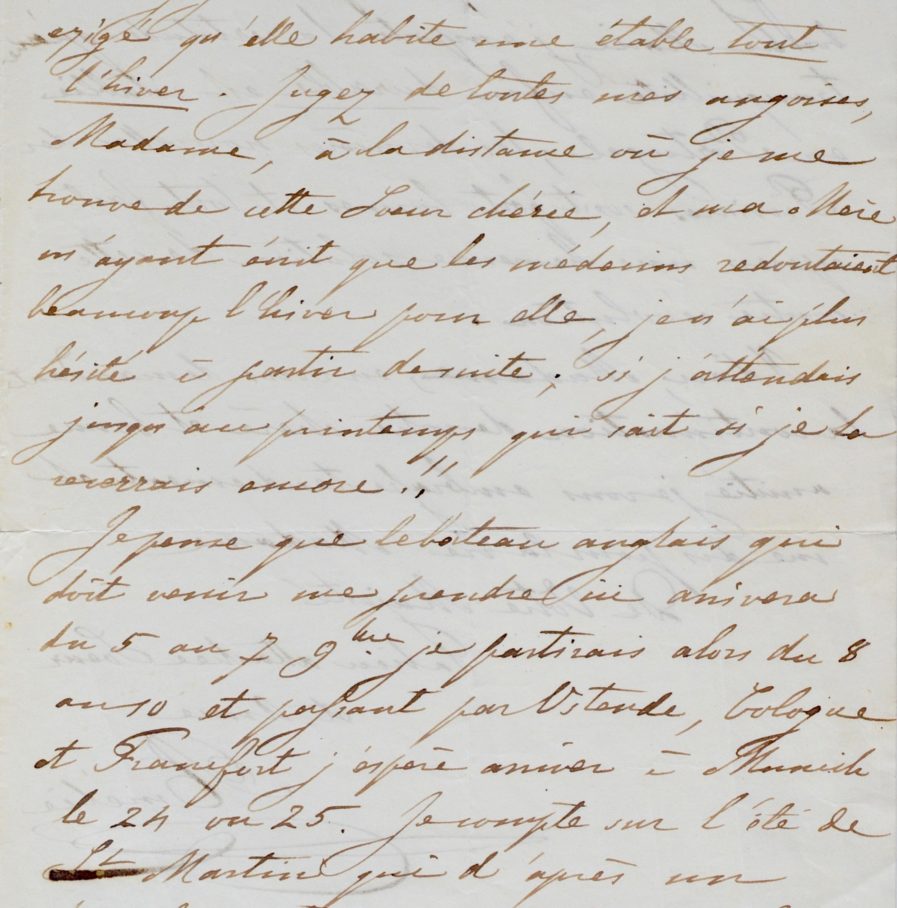 exigé qu'elle habite une étable tout
l'hiver. Jugez de toutes mes angoises,
Madame, à la distance où je me
trouve de cette Soeur chérie, et ma Mère
m'ayant écrit que les médecins redoutaient
beaucoup l'hiver pour elle, je n'ai plus
hésité à partir de suite; si j'attendais
jusqu'au printemps qui sait si je la
reverrais encore!!
Je pense que le bateau anglais qui
doit venir me prendre ici arrivera
du 5 au 7 9bre je partirais alors du 8
au 10 et passant par Ostende, Cologne
et Francfort j'espère arriver à Munich
le 24 ou 25. Je compte sur l'été de
St Martin qui d'après un